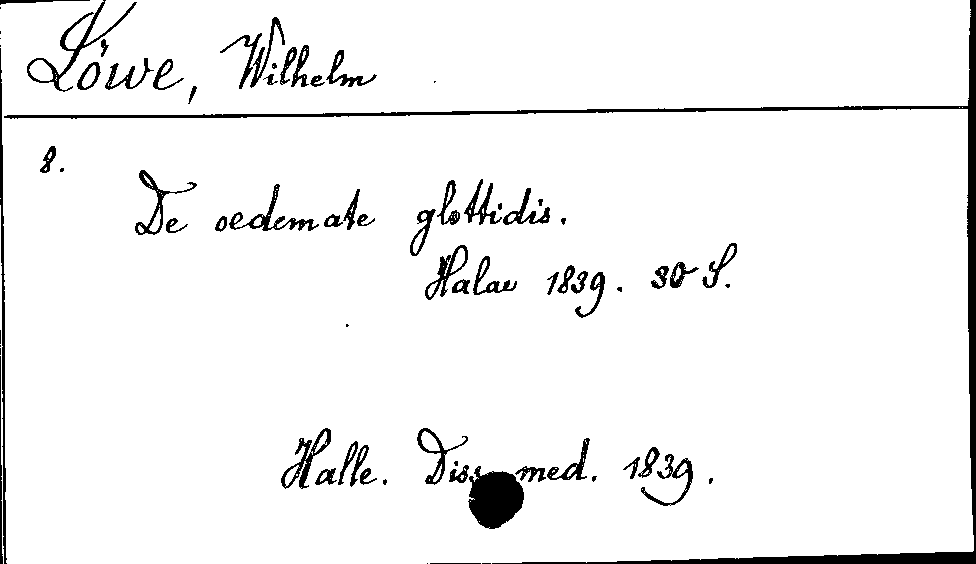 Löwe, Wilhelm
8.
De oedemate glottidis.
Halae 1839. 30 S.
Halle. Diss. med. 1839.